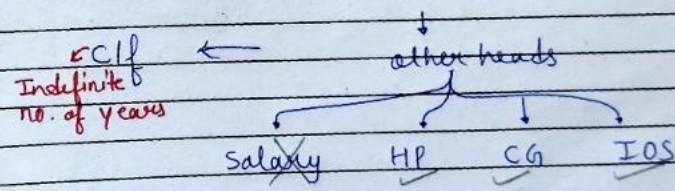 C/f ← other heads
Indefinite
no. of years
Salary HP CG IOS